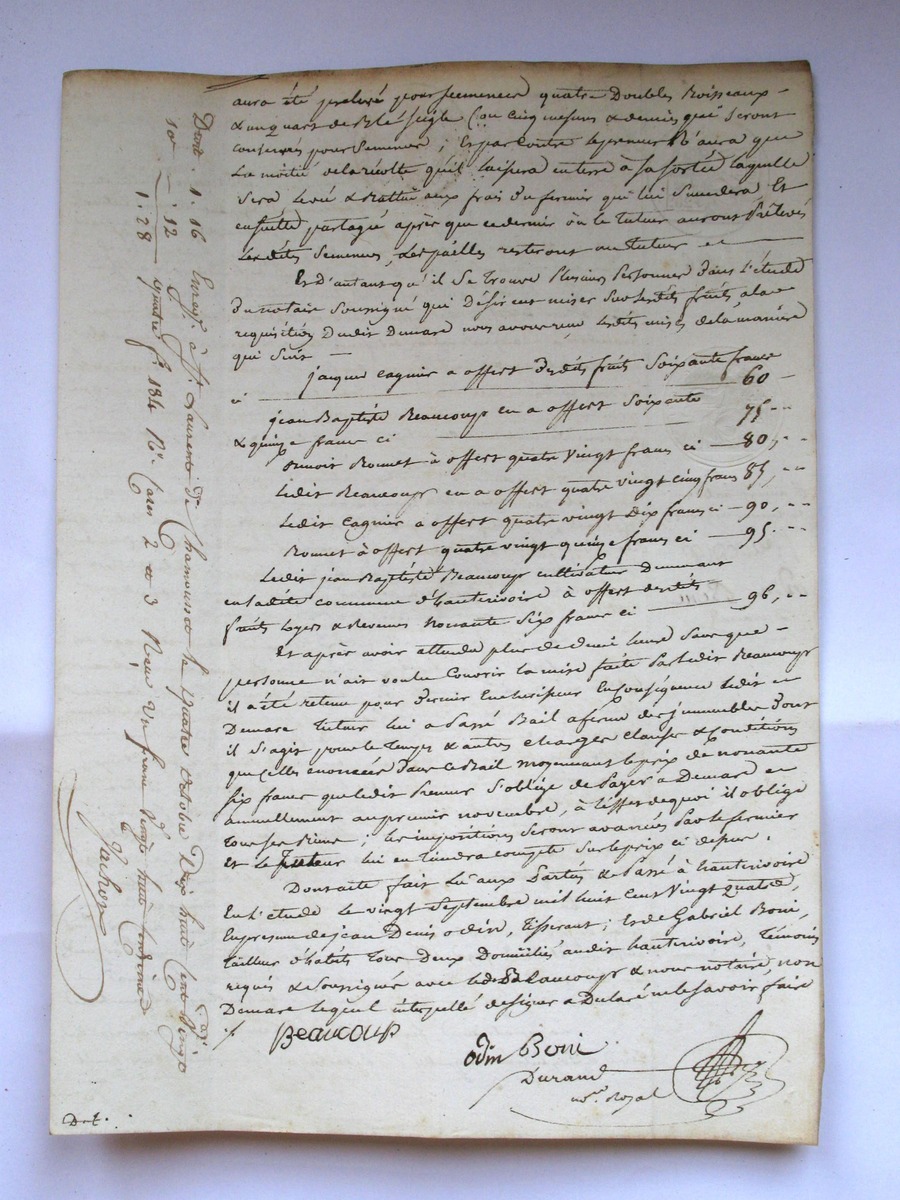 aura été prelevé pour semences quatre Doubles Boisseaux
& un quart de Blé seigle (ou cinq mesures & demies qui seront
conservés pour Semences; Et par contre le preneur N'aura que
La moitié de la récolte qu'il laissera en terre à sa sortie laquelle
sera levé & Battue aux frais du fermier qui lui Succedera Et
ensuite partagé après que ce dernier ou le tuteur auront Prélevés
Lesdites Semences, Les pailles resteront au tuteur
Et d'autant qu'il se trouve Plusieurs Personnes Dans L'étude
Du notaire Soussigné qui désirent miser Sur lesdits fruits, à la
requisition Dudit Demare nous avons reçu lesdites mises de la manière
qui suit
jacques Cagnier a offert Desdits fruits Soixante francs
ci 60
jean Baptiste Beaucoup en a offert Soixante
& quinze francs ci 75
Benoit Ronnet à offert quatre Vingt francs ci 80
Ledit Beaucoup en a offert quatre vingt cinq francs 85
Ledit Cagnier a offert quatre vingt Dix francs ci 90
Ronnet à offert quatre vingt quinze francs ci 95
Ledit jean Baptiste Beaucoup cultivateur Demeurant
en ladite commune d'hauterivoire à offert desdits
fruits Loyers & Revenus Nonante Six francs ci 96
Et après avoir attendu plus de demi heure Sans que
personne n'ait voulu Couvrir la mise faite Par ledit Beaucoup
il a été retenu pour Dernier Encherisseur En Conséquence ledit
Demare tuteur lui a Passé Bail a ferme des jmmeubles Dont
il S'agit pour le Temps & autres charges Clauses & Conditions
que celles enoncées Dans ce Bail moyennant le prix de nonante
six francs que ledit Preneur S'oblige de Payer a Demare
annuellement au premier novembre, à l'effet de quoi il oblige
Tous ses Biens; les impositions seront avancés Par le fermier
Et le tuteur lui en tiendra compte Sur le prix ci dessus.
Dont acte fait Lu aux Parties & Passé à hauterivoire
En L'étude Le vingt Septembre mil huit Cent Vingt quatre,
En presence de jean Denis odin, Tisserant; Et de Gabriel Boni,
tailleur d'habits Tous Deux Domiciliés audit hauterivoire, Témoins
requis & Soussignés avec ledit Beaucoup & nous notaire, non
Demare lequel interpellé de signer a Déclaré ne le savoir faire
BEAUCOUP
odin Boni
Durand
not. Royal
Enreg. à St Laurent de Chamousset le quatre octobre Dix huit Cent Vingt
quatre f° 184 R° Cases 2 et 3 Reçu Un franc Vingt huit Centimes
Dont 1. 16
10e - . 12
1. 28